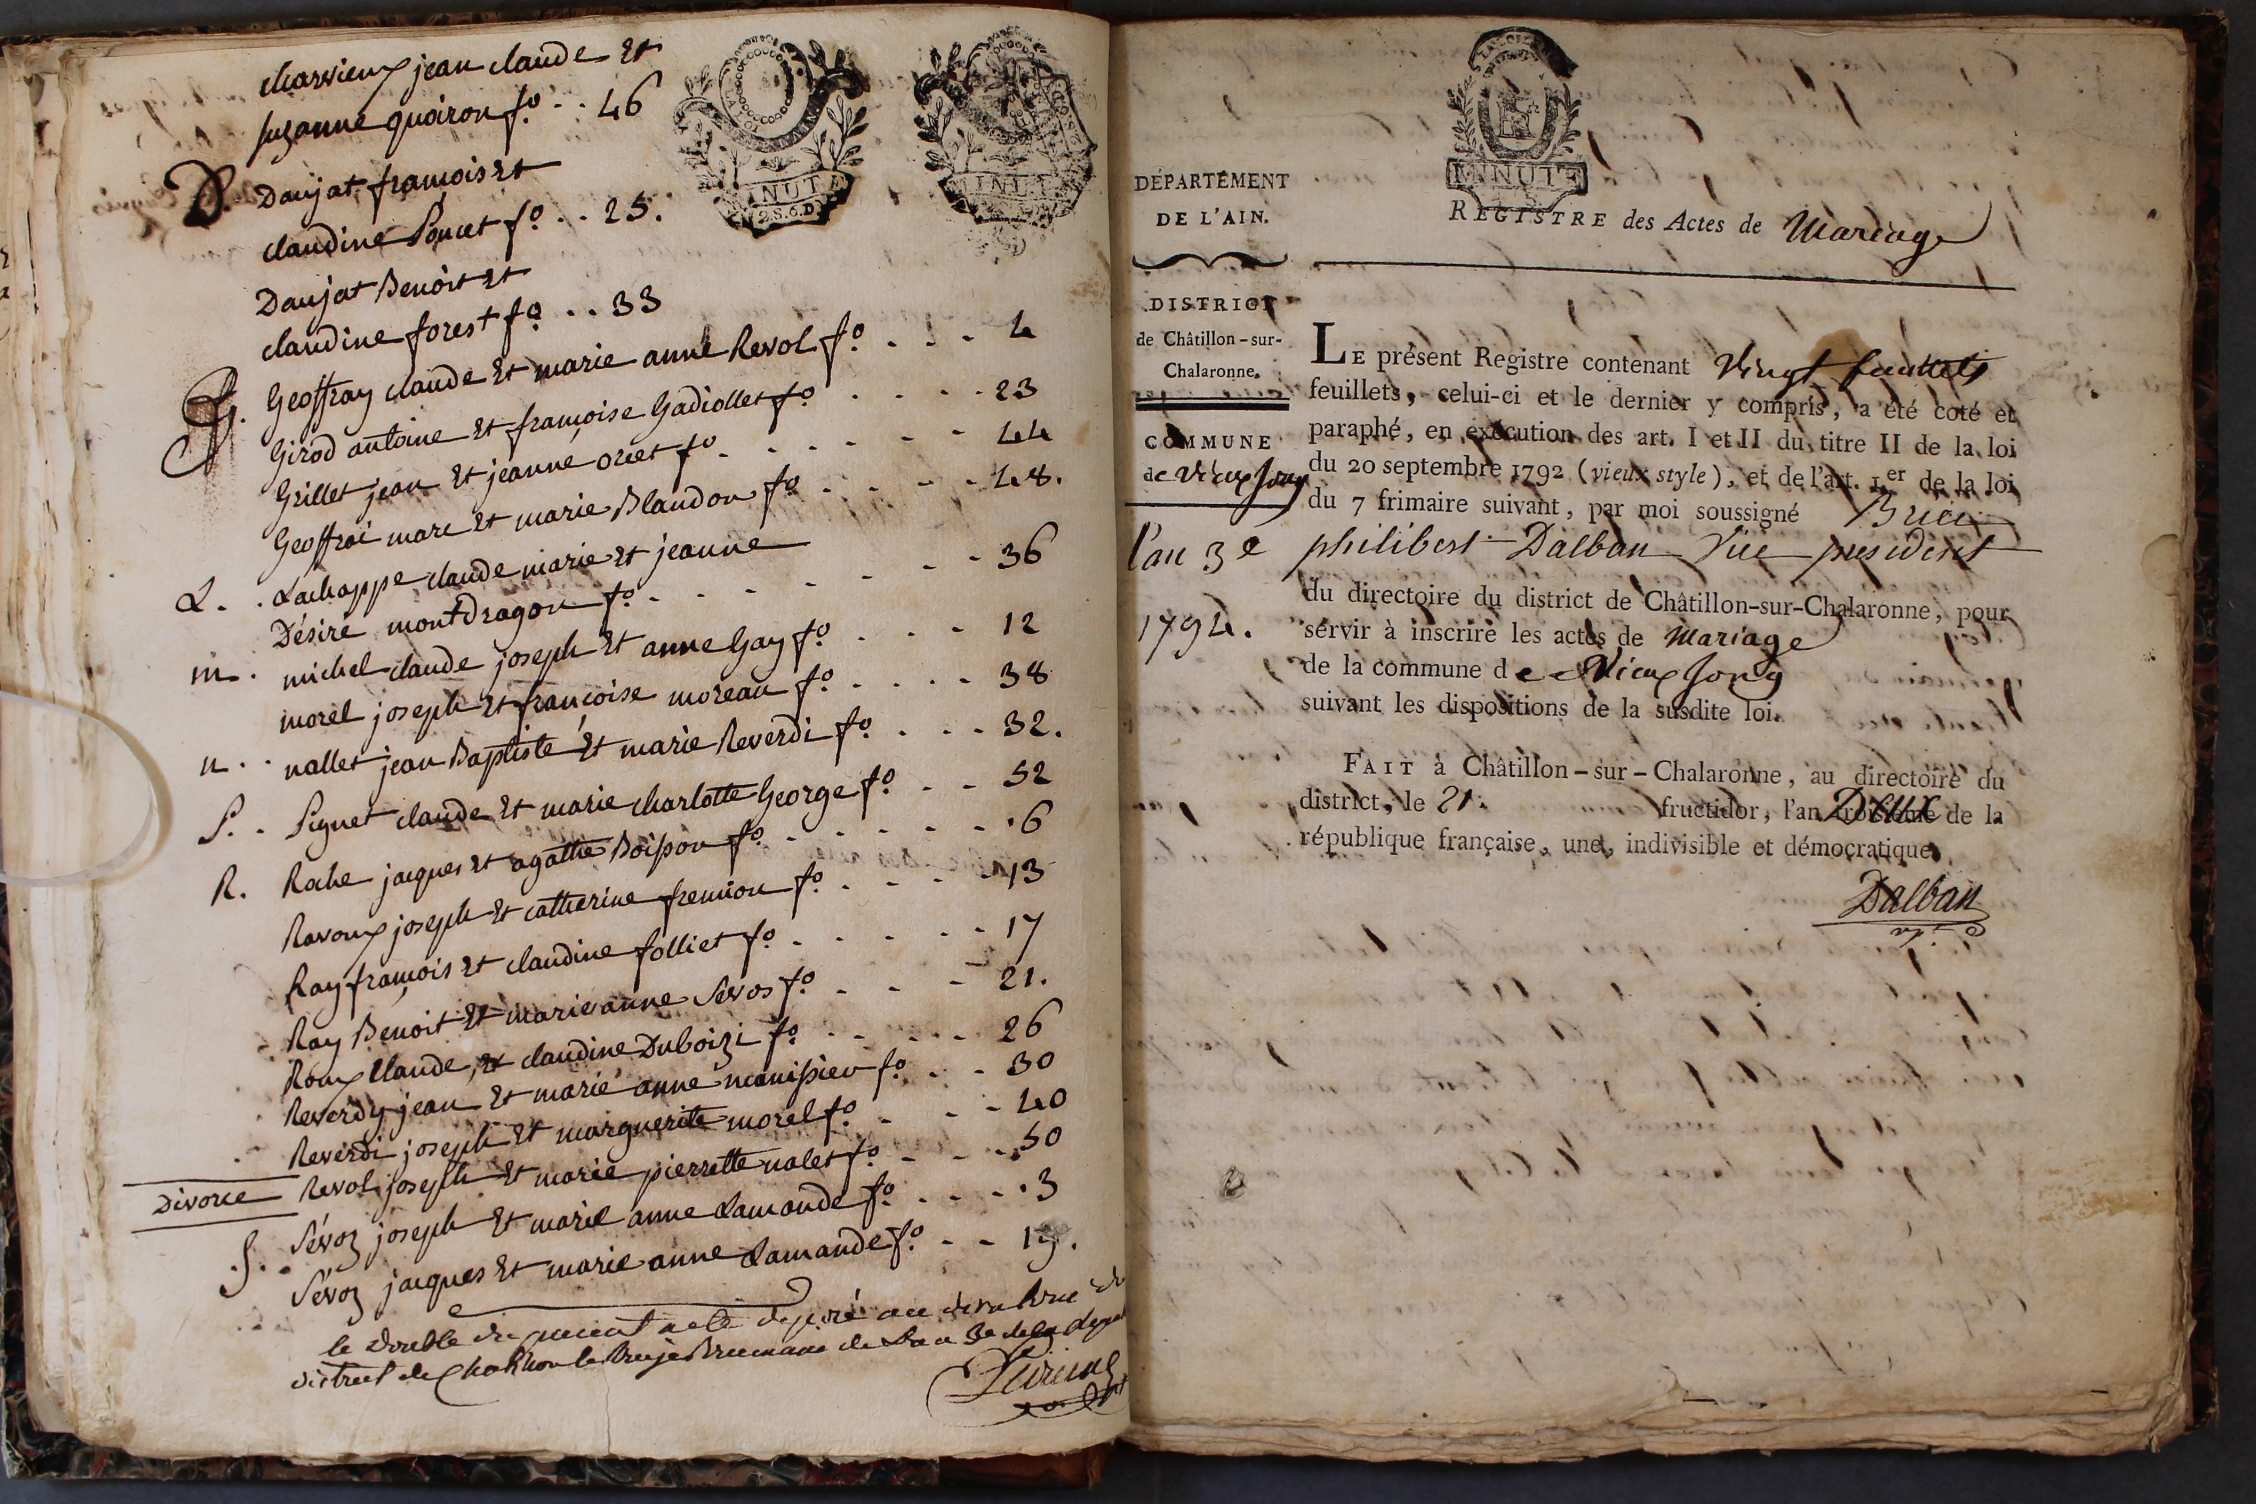 charvieux jean claude et
suzanne quoiron fo. .. 46
D. Daujat françois et
claudine Poncet fo. .. 25.
Daujat Benoit et
claudine forest fo .. 33
G. Geoffray claude et marie anne Revol fo. . . . 4
Girod antoine et françoise Gadiollet fo . . . . 23
Grillet jean et jeanne orcet fo . . . . . . 44
Geoffrai marc et marie Blandon fo . . . . 48.
L. . Lachappe claude marie et jeanne
Désiré montdragon fo. . . . . . . . 36
m. michel claude joseph et anne Gay fo. . . . 12
morel joseph et françoise moreau fo. . . . . 38
n. . nallet jean Baptiste et marie Reverdi fo. . . . 32.
P. . Pignet claude et marie charlotte George fo. . . 52
R. Roche jacques et agathe Boisson fo. . . . . . . 6
Ravoux joseph et catherine fremion fo. . . . . 13
Ray françois et claudine folliet fo. . . . . . 17
Ray Benoit et marie anne Sevos fo. . . . 21.
Roux Claude, et claudine Duboizi fo. . . . . . 26
Reverdy jean et marie anne manissieu fo. . . 30
Reverdi joseph et marguerite morel fo. . . . 40
Divorce Revol joseph et marie pierrette nalet fo. . . . 50
S. . Sévoz joseph et marie anne Lamande fo. . . . . 3
Sévoz jacques et marie anne Lamande fo. . . 19.
le Double du présent acte déposé au
district de Chatillon le Brumaire de l'an 3e de la
MINUTE
2.S.6.D
MINUTE
MINUTE
DÉPARTEMENT
DE L'AIN.
DISTRICT
de Châtillon-sur-
Chalaronne.
COMMUNE
de Vieux Jonq
l'an 3e
1794.
REGISTRE des Actes de Mariage
LE présent Registre contenant Vingt feuillets
feuillets, celui-ci et le dernier y compris, a été coté et
paraphé, en exécution des art. I et II du titre II de la loi
du 20 septembre 1792 (vieux style), et de l'art. 1.er de la loi
du 7 frimaire suivant, par moi soussigné Brice
philibert Dalban Vice president
du directoire du district de Châtillon-sur-Chalaronne, pour
servir à inscrire les actes de Mariage
de la commune de Vieux Jonq
suivant les dispositions de la susdite loi.
FAIT à Châtillon-sur-Chalaronne, au directoire du
district, le 21. fructidor, l'an Deux de la
république française, une, indivisible et démocratique.
Dalban